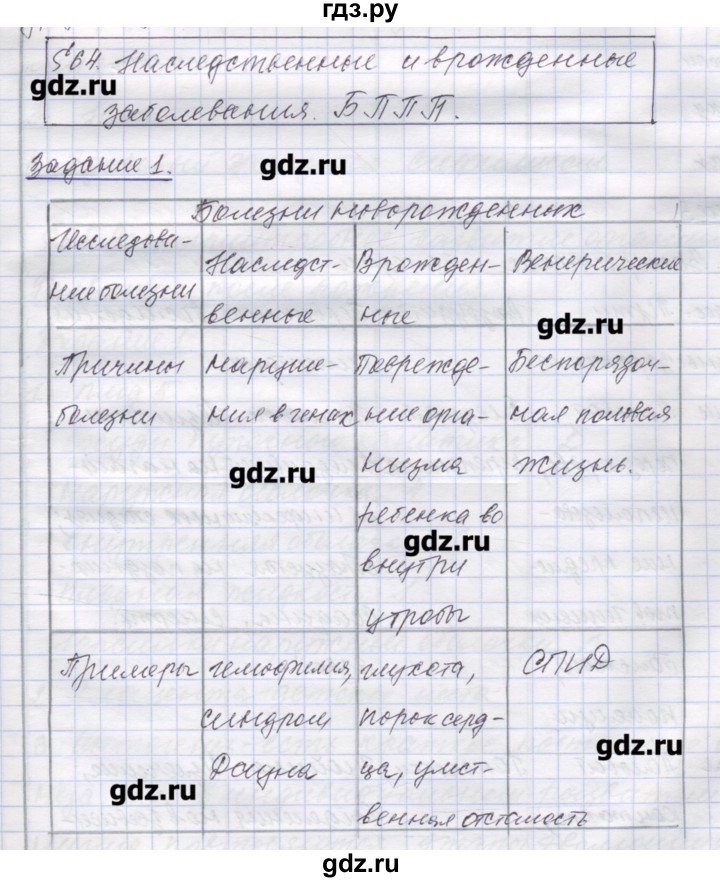 гдз.ру
§64. Наследственные и врожденные
gdz.ru
заболевания. БППП.
Задание 1.
gdz.ru
Болезни новорожденных
Исследова-
ние болезни
Наследст-
венные
Врожден-
ные
Венерические
gdz.ru
Причины
болезни
наруше-
ния в генах
Поврежде-
ние орга-
низма
ребенка во
внутри
утробы
Беспорядоч-
ная половая
жизнь.
gdz.ru
gdz.ru
Примеры
гемофилия,
синдром
Дауна
глухота,
порок серд-
ца, умст-
венная отсталость
СПИД
gdz.ru
gdz.ru
gdz.ru